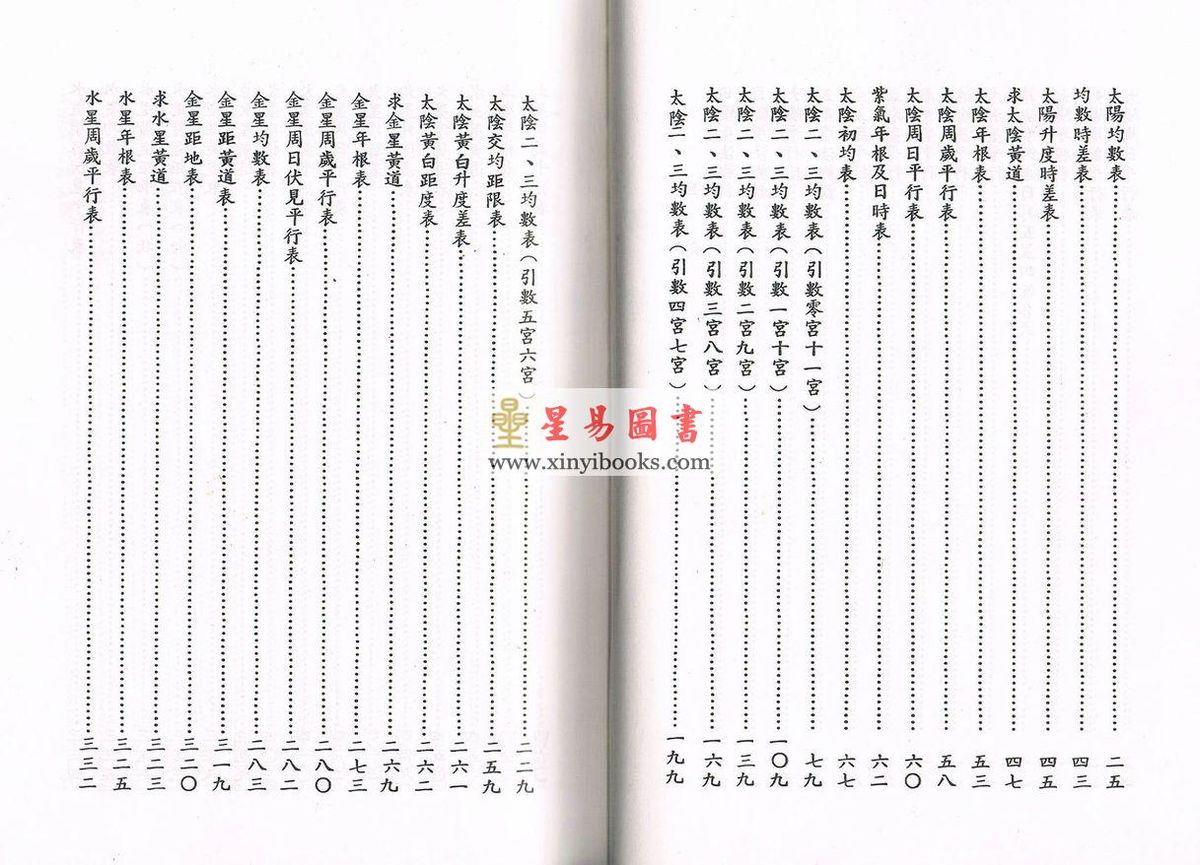 太陽均數表……二五
均數時差表……四三
太陽升度時差表……四五
求太陰黃道……四七
太陰年根表……五三
太陰周歲平行表……五八
太陰周日平行表……六〇
紫氣年根及日時表……六二
太陰初均表……六七
太陰二、三均數表(引數零宮十一宮)……七九
太陰二、三均數表(引數一宮十宮)……一〇九
太陰二、三均數表(引數二宮九宮)……一三九
太陰二、三均數表(引數三宮八宮)……一六九
太陰二、三均數表(引數四宮七宮)……一九九
太陰二、三均數表(引數五宮六宮)……二二九
太陰交均距限表……二五九
太陰黃白升度差表……二六一
太陰黃白距度表……二六二
求金星黃道……二六九
金星年根表……二七三
金星周歲平行表……二八〇
金星周日伏見平行表……二八二
金星均數表……二八三
金星距黃道表……三一九
金星距地表……三二〇
求水星黃道……三二三
水星年根表……三二五
水星周歲平行表……三三二
星易圖書
www.xinyibooks.com